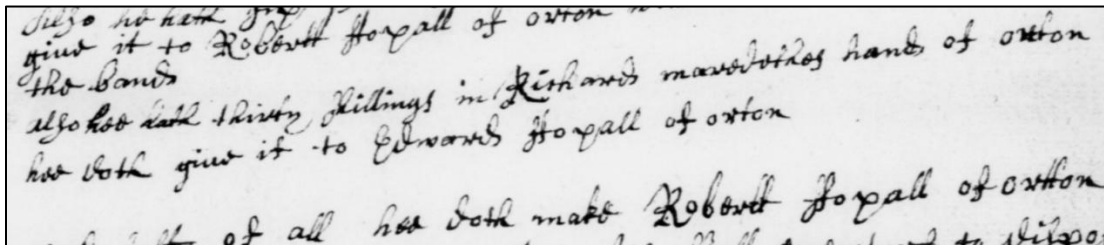 also he hath
give it to Robertt Foxall of orton
the bands
also hee hath thirty shillings in Richards maredethes hands of orton
hee doth give it to Edwards Foxall of orton
of all hee doth make Robertt Foxall of ortton
to